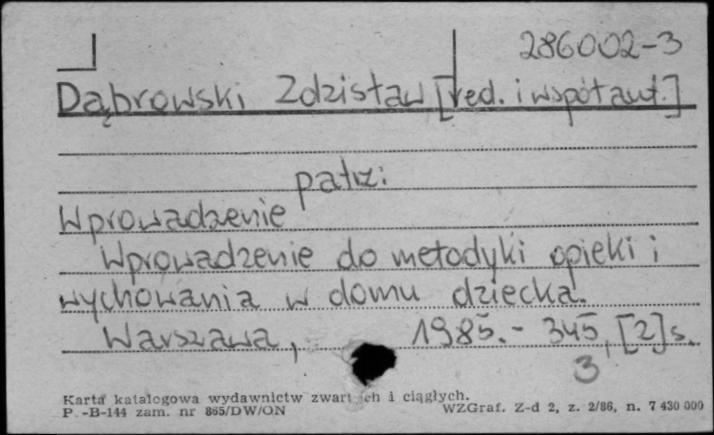 286002-3
Dąbrowski Zdzisław [red. i współaut.]
patrz:
Wprowadzenie
Wprowadzenie do metodyki opieki i
wychowania w domu dziecka.
Warszawa, 1985. - 345, [2] s.
3
Karta katalogowa wydawnictw zwart ch i ciągłych.
P -B-144 zam. nr 865/DW/ON WZGraf. Z-d 2, z. 2/86, n. 7 430 000